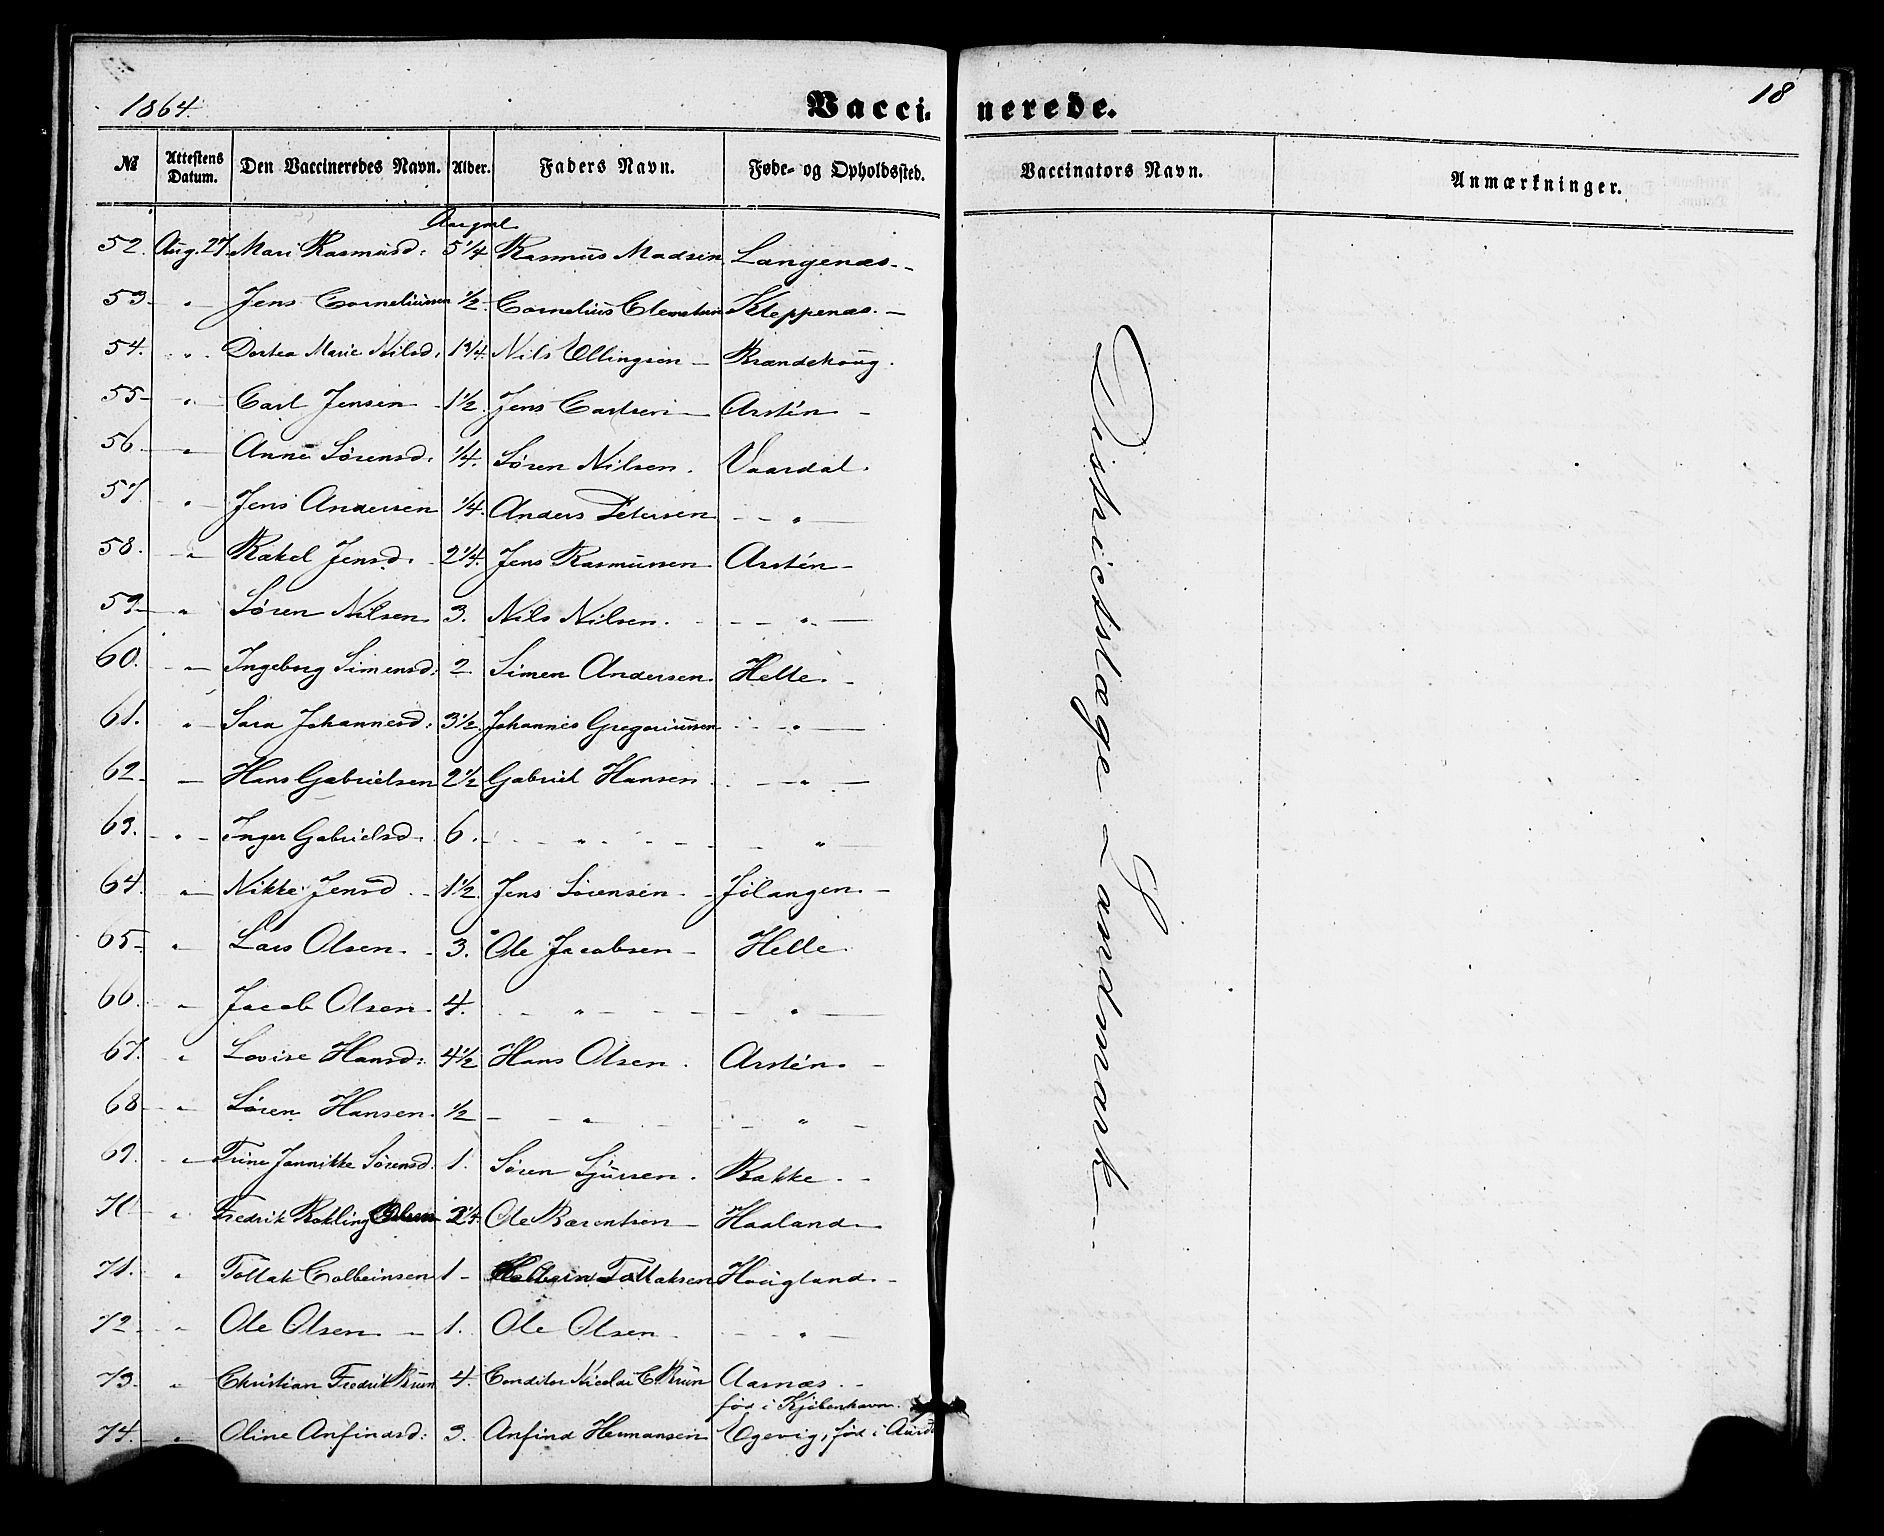 1864. Vaccinerede. 18
№ Attestens Datum. Den Vaccineredes Navn. Alder. Faders Navn. Føde- og Opholdssted. Vaccinators Navn. Anmærkninger.
Aargal
52. Aug. 27 Mari Rasmusd: 5¼ Rasmus Madsen Langenæs.-
53- " Jens Corneliussen ½. Cornelius Clemetsen Kleppenæs.-
54. " Dortea Marie Nilsd. 1¾. Nils Ellingsen - Brændehoug.
55- " Carl Jensen - 1½. Jens Carlsen - Arstén -
56. " Anne Sørensd. ¼. Søren Nilsen. Vaardal.
57. " Jens Andersen ¼. Anders Petersen - " -
58. " Rakel Jensd. 2¼. Jens Rasmussen Arstén -
59- " Søren Nilsen. 3. Nils Nilsen. - " -
60. " Ingeborg Simensd: 2. Simen Andersen. Helle. -
61. " Sara Johannesd: 3½. Johannes Gregoriussen - " -
62- - Hans Gabrielsen 2½ Gabriel Hansen. - " -
63. " Inger Gabrielsd. 6. - " - - " -
64. " Nikke Jensd - 1½. Jens Sørensen - Jølangen. -
65- " Lars Olsen. - 3. Ole Jacobsen - Helle.
66. " Jacob Olsen. 4. - " - - " -
67. " Lovise Hansd: 4½ Hans Olsen. Arstén. -
68- " Søren Hansen. ½ - " - - " -
69. " Trine Jannikke Sørensd. 1. Søren Sjursen. Bakke. -
70- " Fredrik Rokling Olsen 2¼ Ole Bærentsen - Haaland. -
71. " Tollak Colbeinsen 1- Tollaksen Hougland. -
72- " Ole Olsen. - 1. Ole Olsen - - " -
73. " Christian Fredrik Brun 4. Conditor Nicolai C. Brun Aarnæs. -
fød i Kjøbenhavn.
74. " Oline Anfindsd: 3. Anfind Hermansen Egevig, fød i
Districtslæge Landmark -